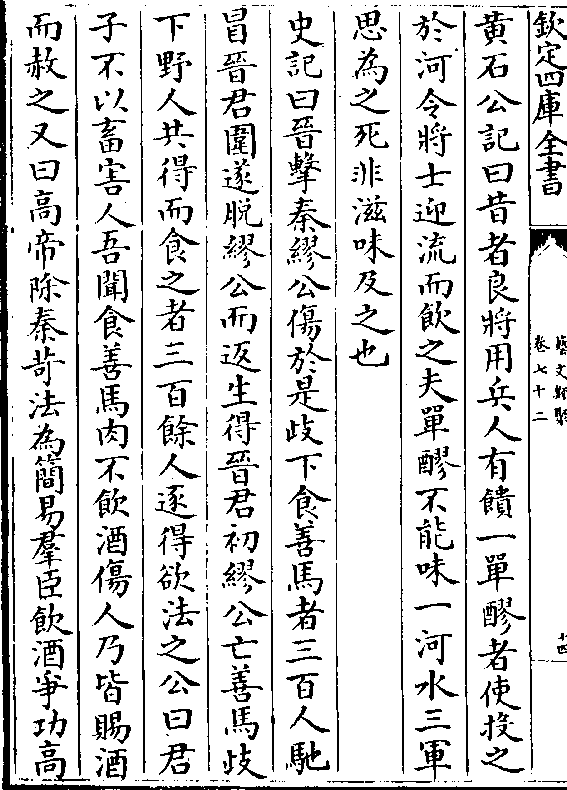 欽定四庫全書
藝文類聚
卷七十二
十四
黃石公記曰昔者良將用兵人有饋一單醪者使投之
於河令將士迎流而飲之夫單醪不能味一河水三軍
思為之死非滋味及之也
史記曰晉擊秦繆公傷於是歧下食善馬者三百人馳
冒晉君圍遂脫繆公而返生得晉君初繆公亡善馬歧
下野人共得而食之者三百餘人逐得欲法之公曰君
子不以畜害人吾聞食善馬肉不飲酒傷人乃皆賜酒
而赦之又曰高帝除秦苛法為簡易羣臣飲酒爭功高